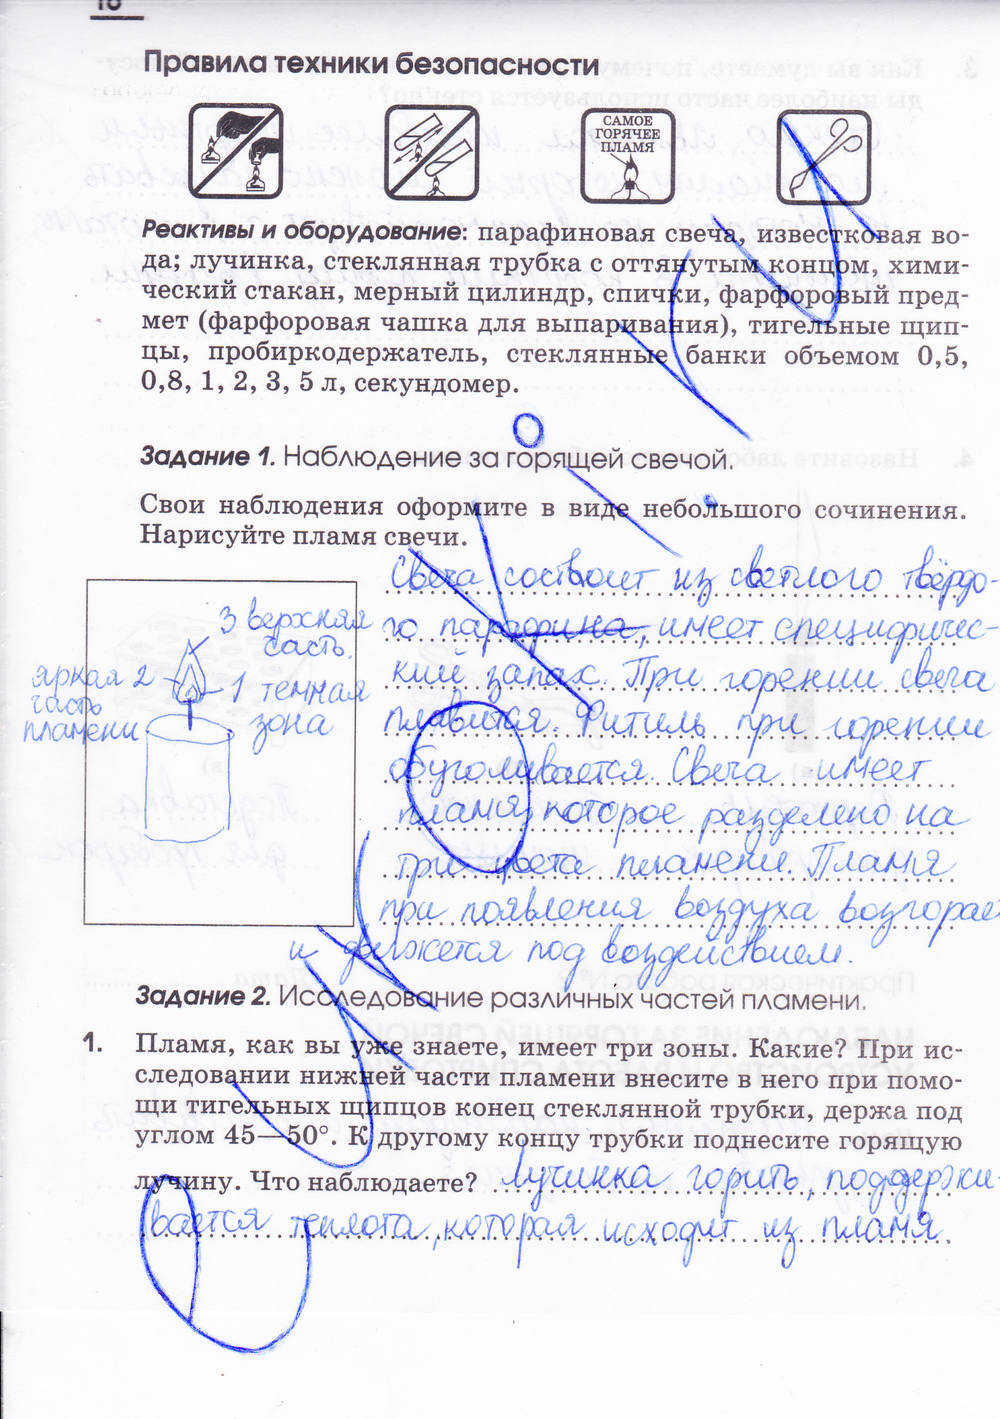 16
Правила техники безопасности
САМОЕ
ГОРЯЧЕЕ
ПЛАМЯ
Реактивы и оборудование: парафиновая свеча, известковая во-
да; лучинка, стеклянная трубка с оттянутым концом, хими-
ческий стакан, мерный цилиндр, спички, фарфоровый пред-
мет (фарфоровая чашка для выпаривания), тигельные щип-
цы, пробиркодержатель, стеклянные банки объемом 0,5,
0,8, 1, 2, 3, 5 л, секундомер.
Задание 1. Наблюдение за горящей свечой.
Свои наблюдения оформите в виде небольшого сочинения.
Нарисуйте пламя свечи.
3 верхняя
часть.
яркая 2
часть
пламени
1 темная
зона
Свеча состоит из светлого твёрдо-
го парафина, имеет специфичес-
кий запах. При горении свеча
плавится. Фитиль при горении
обугливается. Свеча имеет
пламя, которое разделено на
три цвета пламени. Пламя
при появления воздуха возгорает
и движется под воздействием.
Задание 2. Исследование различных частей пламени.
1. Пламя, как вы уже знаете, имеет три зоны. Какие? При ис-
следовании нижней части пламени внесите в него при помо-
щи тигельных щипцов конец стеклянной трубки, держа под
углом 45—50°. К другому концу трубки поднесите горящую
лучину. Что наблюдаете? Лучинка горить, поддержи-
вается теплота, которая исходит из пламя